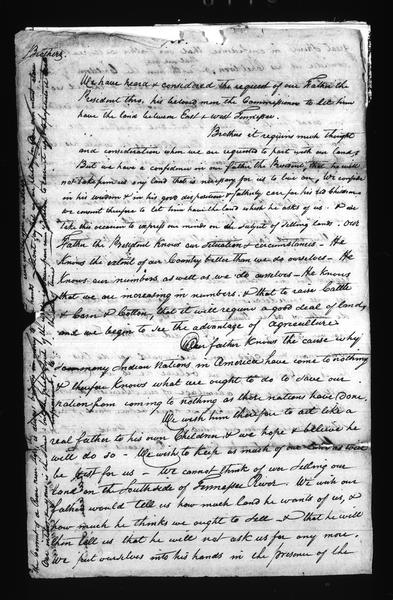 Brothers.
We have heard & considered the request of our Father the
President thro. his beloved men the Commissioners to let him
have the land between East & West Tennessee.
Brothers it requires much thought
and consideration when we are requested to part with our land,
But we have a confidence in our father the President, that he will
not take from us any land that is necessary for us to live on, We confide
in his wisdom & in his good disposition & fatherly care for his red Children
we consent therefore to let him have the land which he asks of us. & we
take this occasion to express our minds on the subject of selling lands. Our
Father the President Knows our situation & circumstances - He
Knows the extent of our Country better than we do ourselves - He
Knows our numbers as well as we do ourselves - He knows
that we are increasing in numbers. & that to raise Cattle
& Corn & Cotton, that it will require a good deal of land,
and we begin to see the advantage of agriculture
Our father Knows the cause why
so many Indian Nations in America have come to nothing
& therefore Knows what we ought to do to save our
nation from coming to nothing as those nations have done.
We wish him therefore to act like a
real father to his own Children & we hope & believe he
will do so - We wish to keep as much of our land as will
be best for us - We cannot think of our selling our
land on the South side of Tennessee River. We wish our
father would tell us how much land he wants of us, &
how much he thinks we ought to sell - & that he will
then tell us that he will not ask us for any more.
We put ourselves into his hands in the presence of the